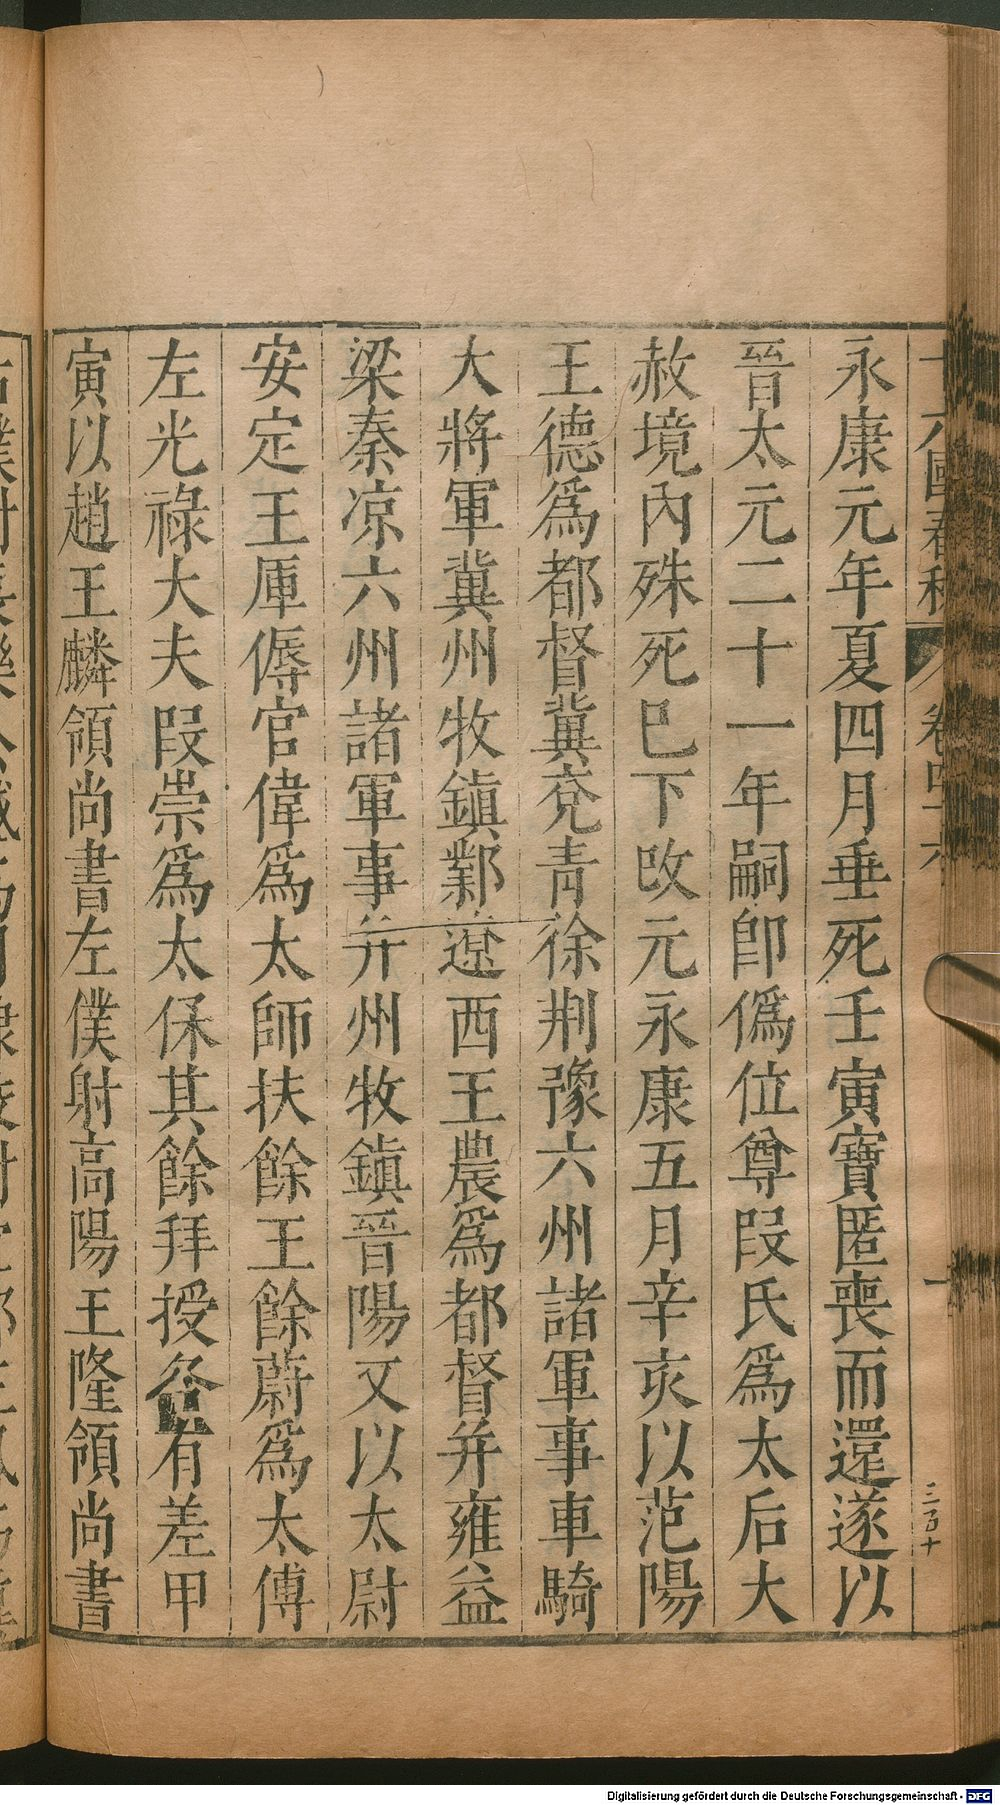 永康元年夏四月垂死壬寅寶匿喪而還遂以
晉太元二十一年嗣卽僞位尊段氏爲太后大
赦境內殊死已下改元永康五月辛亥以范陽
王德爲都督冀兗青徐荆豫六州諸軍事車騎
大將軍冀州牧鎮鄴遼西王農爲都督并雍益
梁秦凉六州諸軍事并州牧鎮晉陽又以太尉
安定王厙傉官偉爲太師扶餘王餘蔚爲太傅
左光祿大夫段崇爲太保其餘拜授各有差甲
寅以趙王麟領尚書左僕射高陽王隆領尚書
Digitalisierung gefördert durch die Deutsche Forschungsgemeinschaft - DFG